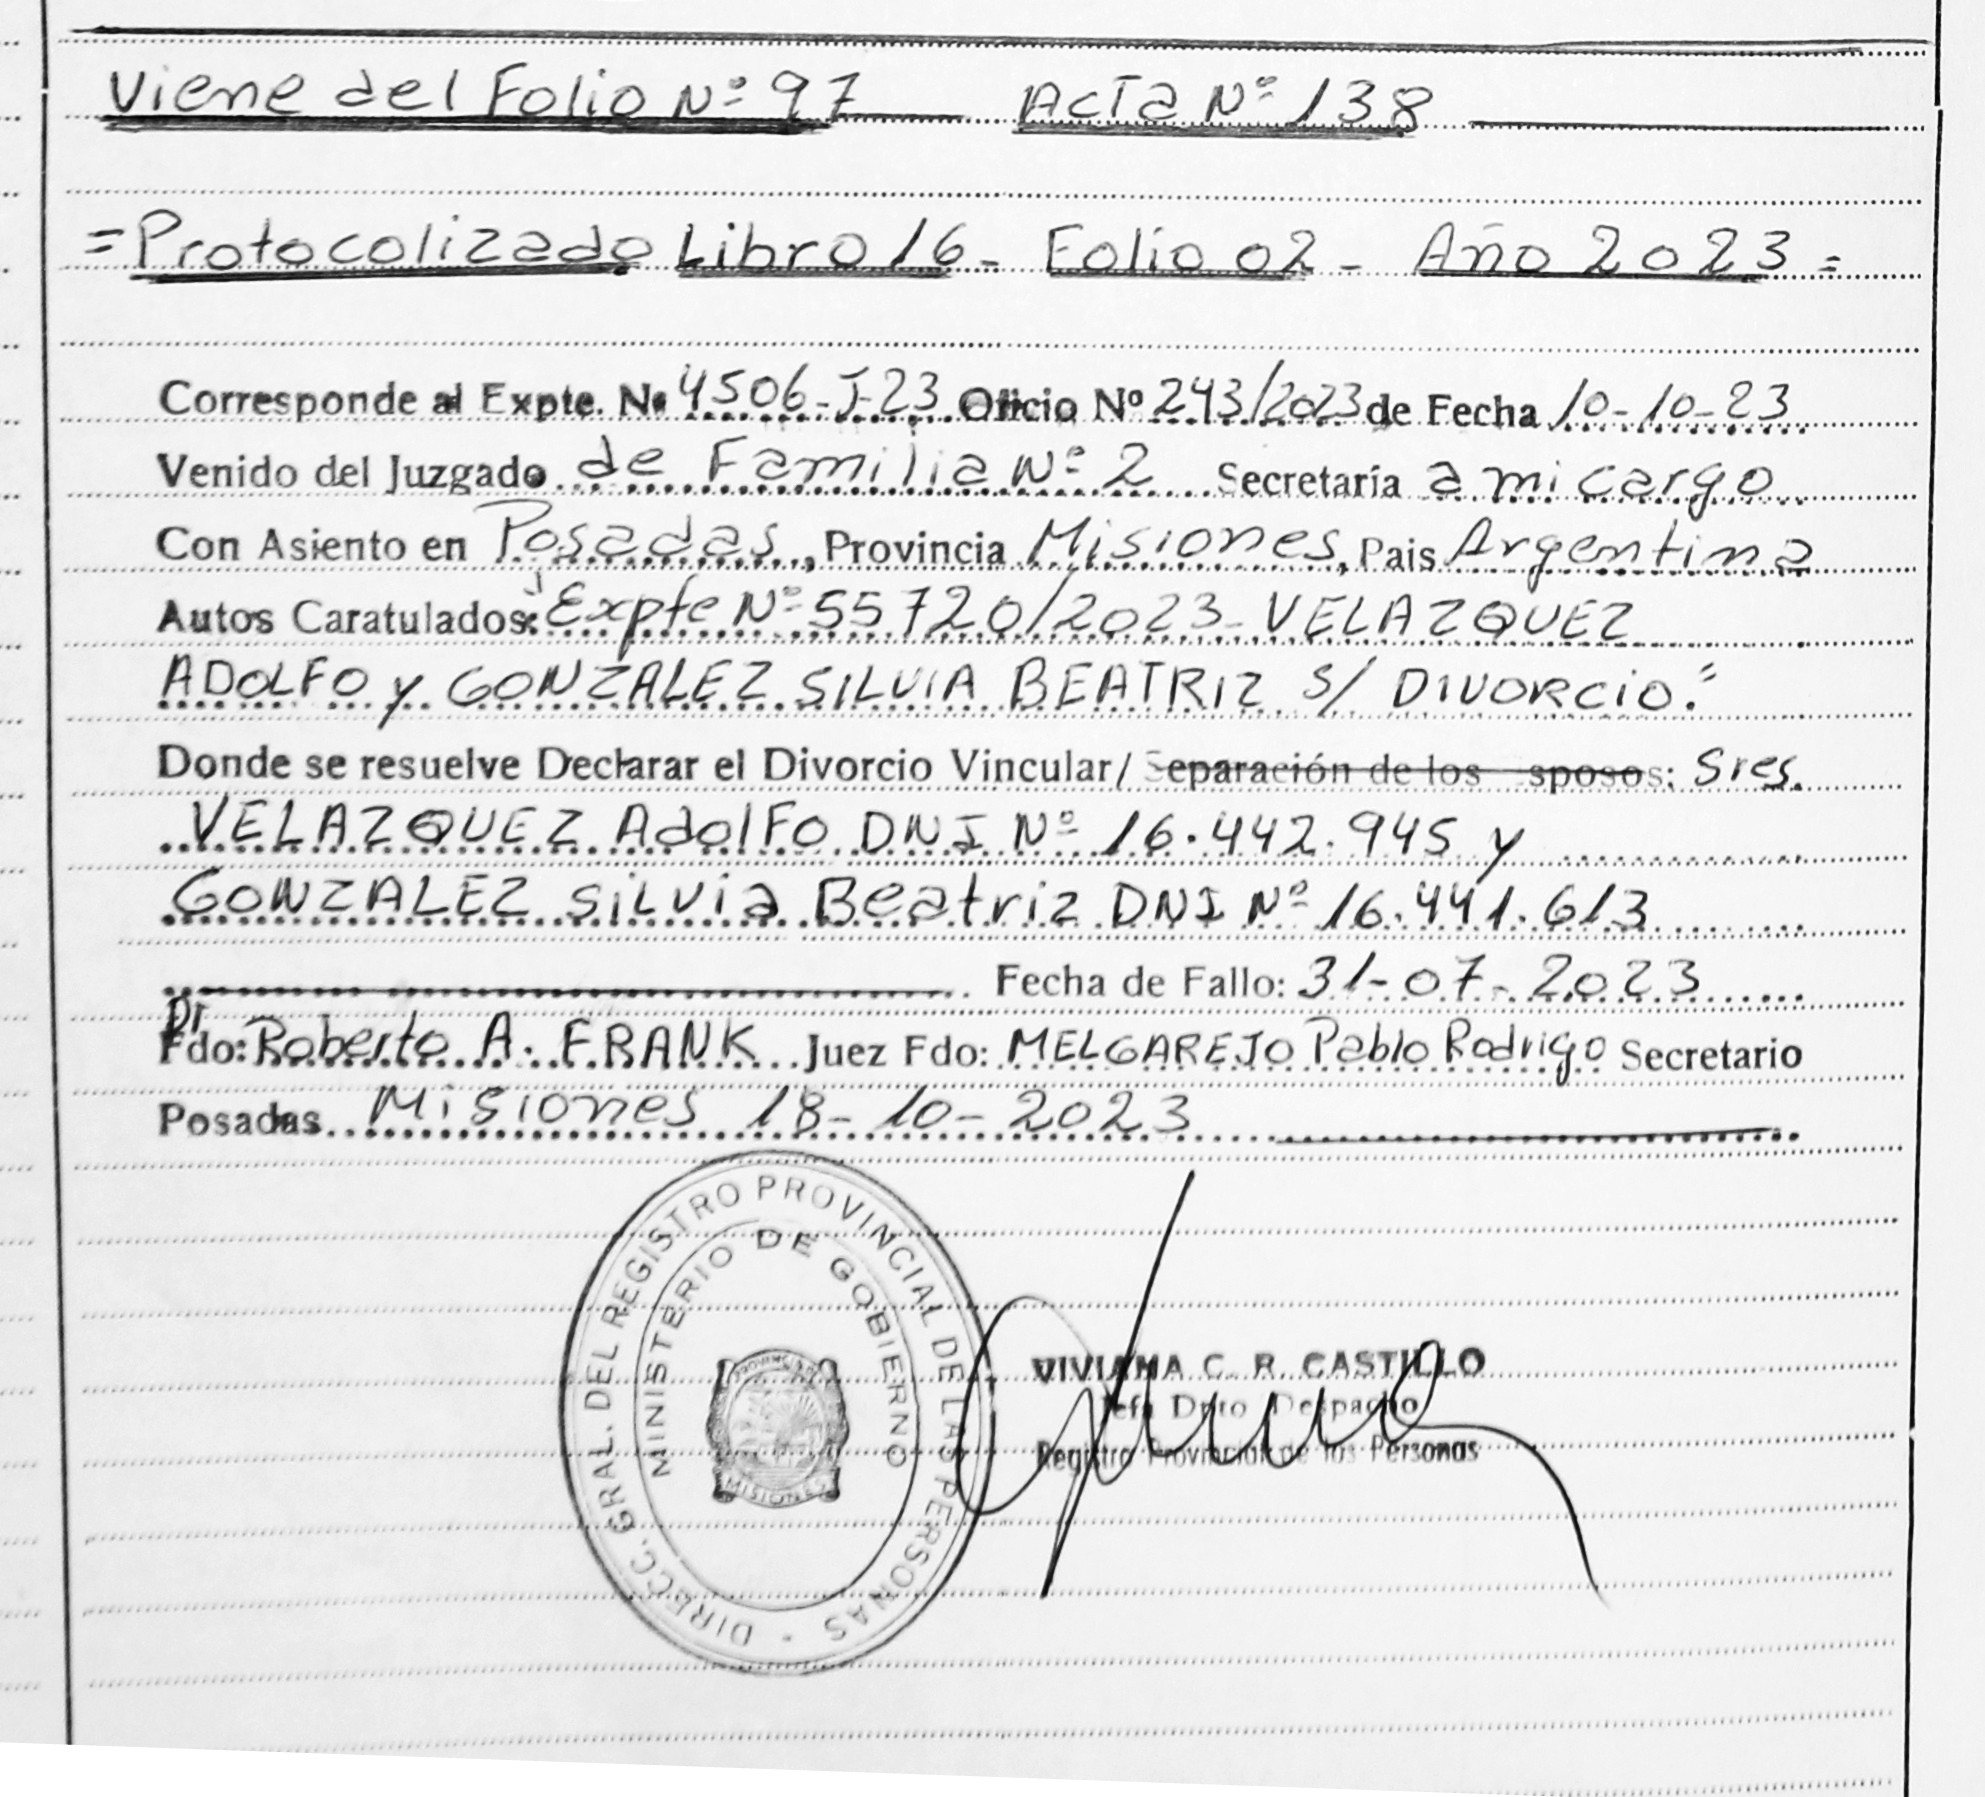 Viene del Folio Nº 97 Acta Nº 138
=Protocolizado Libro 16- Folio 02- Año 2023=
Corresponde al Expte. Nº 4506-J-23 Oficio Nº 243/2023 de Fecha 10-10-23
Venido del Juzgado de Familia Nº 2 Secretaría a mi cargo
Con Asiento en Posadas, Provincia Misiones, Pais Argentina
Autos Caratulados: "Expte Nº 55720/2023- VELAZQUEZ
ADOLFO y GONZALEZ SILVIA BEATRIZ S/ DIVORCIO."
Donde se resuelve Declarar el Divorcio Vincular/ Separación de los esposos: Sres.
VELAZQUEZ Adolfo DNI Nº 16.442.945 y
GONZALEZ Silvia Beatriz DNI Nº 16.441.613
Fecha de Fallo: 31-07-2023
Dr
Fdo: Roberto A. FRANK Juez Fdo: MELGAREJO Pablo Rodrigo Secretario
Posadas Misiones 18-10-2023
DIRECC. GRAL. DEL REGISTRO PROVINCIAL DE LAS PERSONAS -
MINISTERIO DE GOBIERNO
PROVINCIA DE
MISIONES
VIVIANA C. R. CASTILLO
Jefa Dpto Despacho
Registro Provincial de las Personas